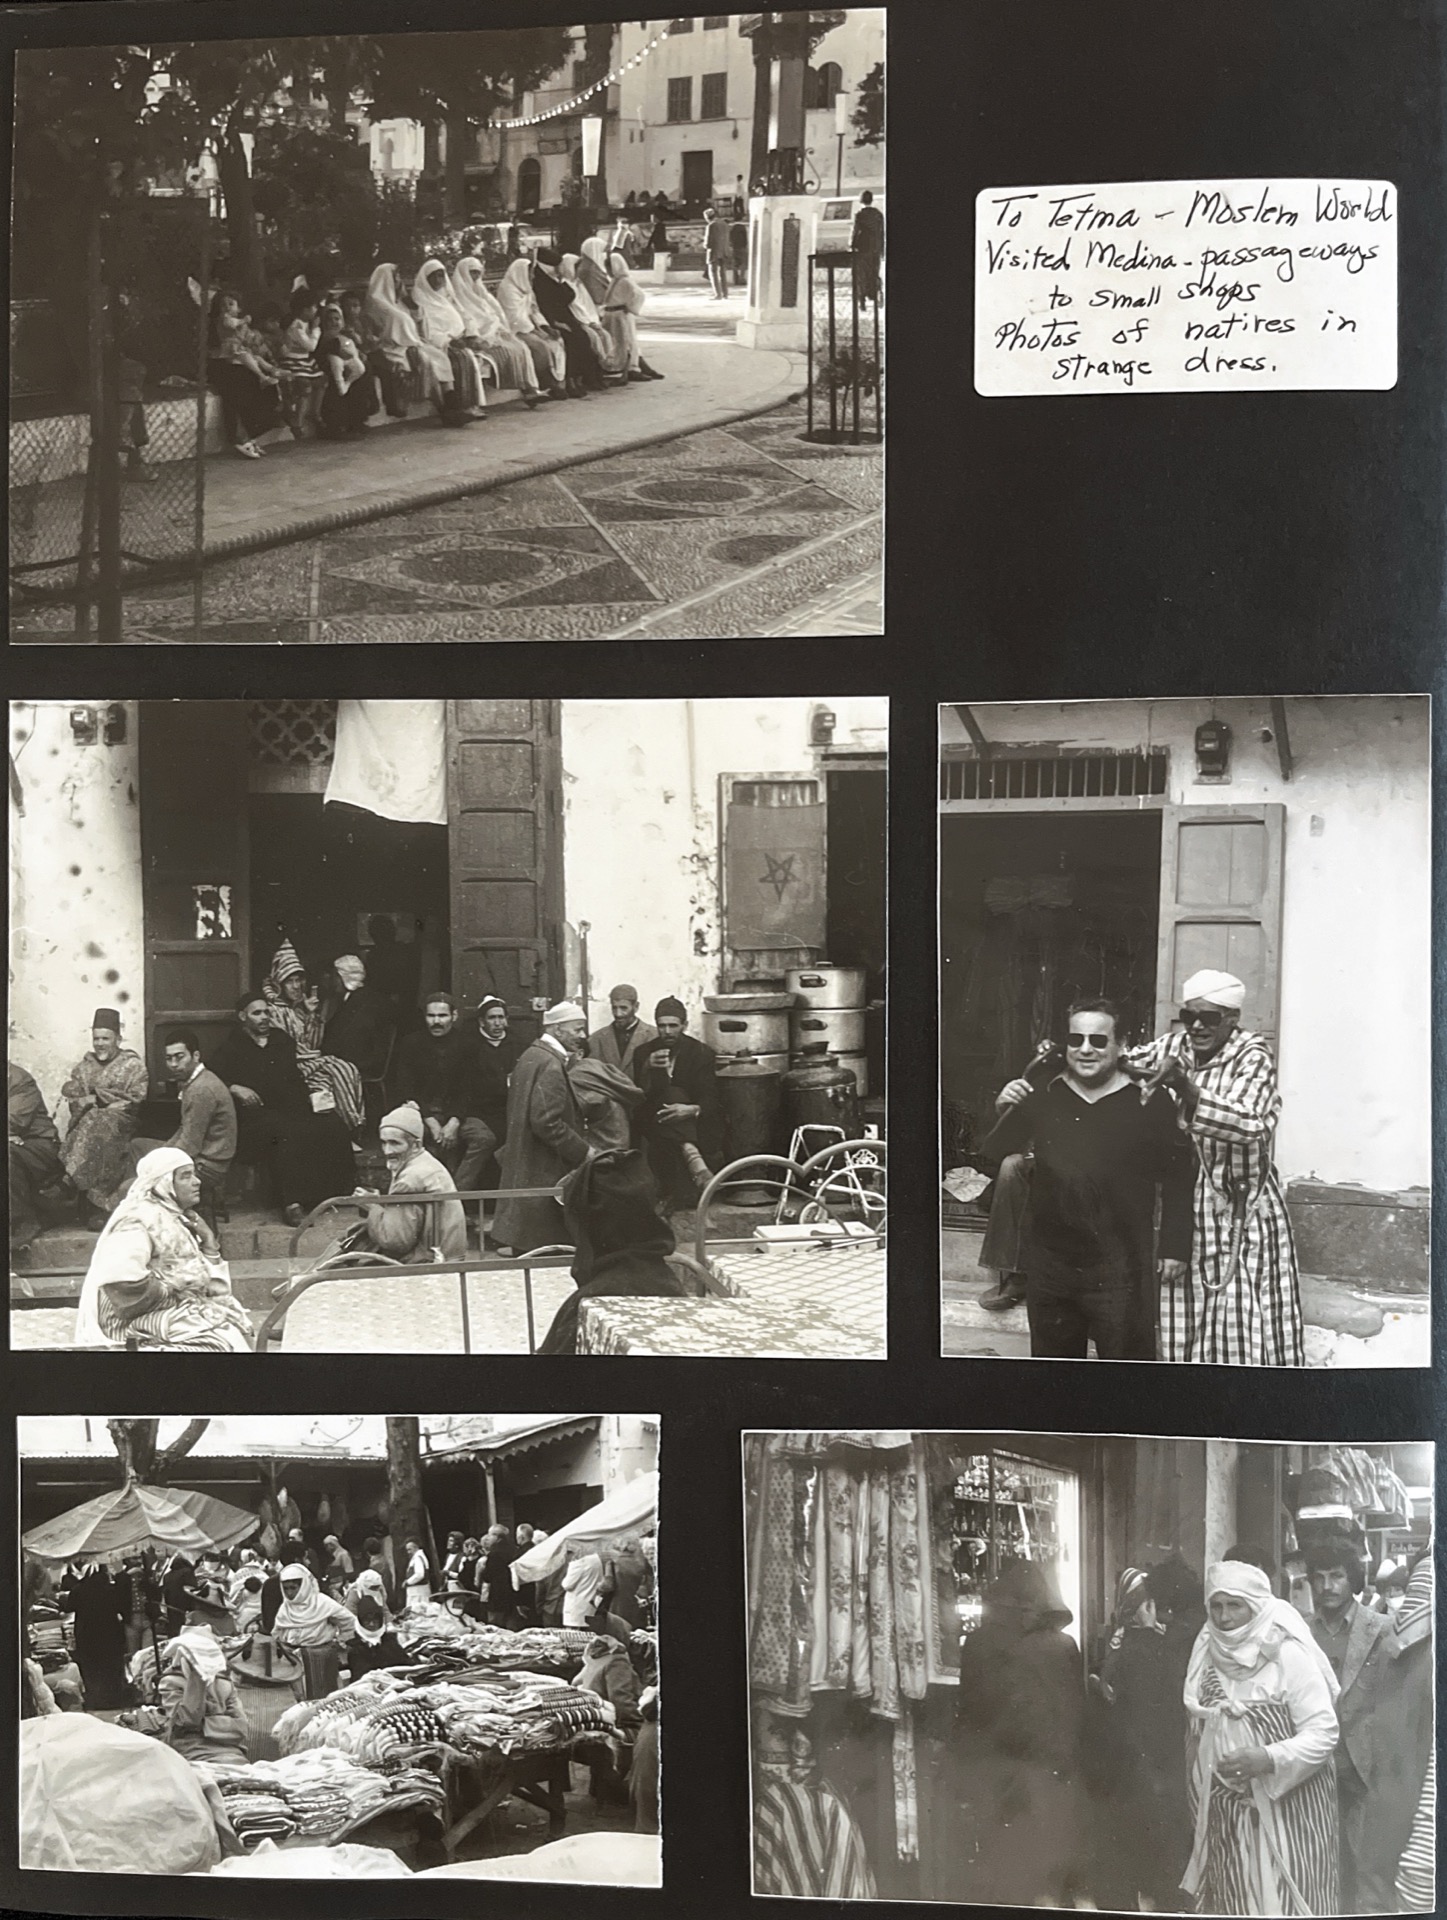 To Tetma - Moslem World
Visited Medina - passageways
to small shops
Photos of natives in
strange dress.